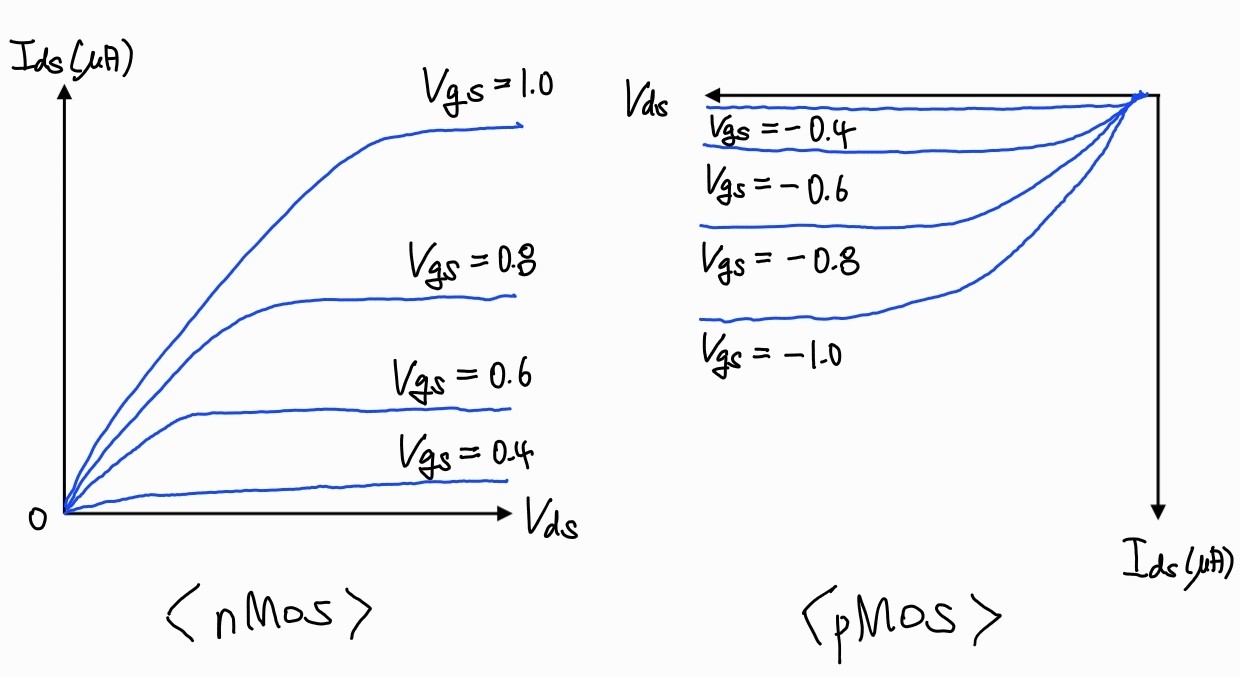 Ids (μA)
Vgs = 1.0
Vgs = 0.8
Vgs = 0.6
Vgs = 0.4
0
Vds
<nMos>
Vds
Vgs = -0.4
Vgs = -0.6
Vgs = -0.8
Vgs = -1.0
Ids (μA)
<pMos>